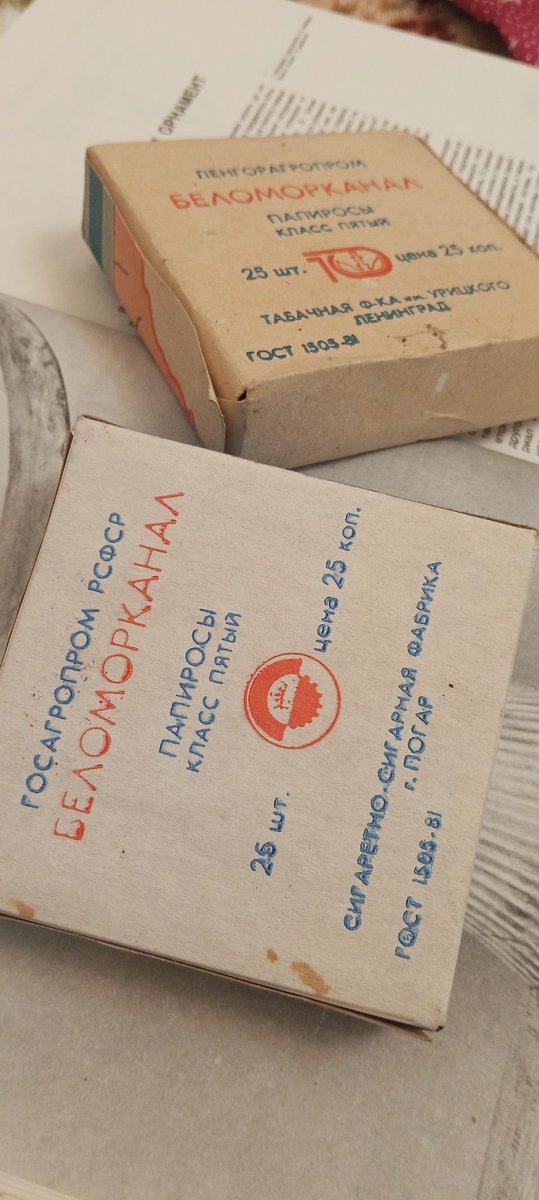 ОРНАМЕНТ
ЛЕНГОРАГРОПРОМ
БЕЛОМОРКАНАЛ
ПАПИРОСЫ
КЛАСС ПЯТЫЙ
25 шт. цена 25 коп.
ТАБАЧНАЯ Ф-КА им. УРИЦКОГО
ЛЕНИНГРАД
ГОСТ 1505-81
РОСАГРОПРОМ РСФСР
БЕЛОМОРКАНАЛ
ПАПИРОСЫ
КЛАСС ПЯТЫЙ
25 шт. цена 25 коп.
СИГАРЕТНО-СИГАРНАЯ ФАБРИКА
г. ПОГАР
ГОСТ 1505-81